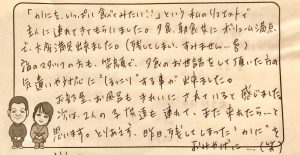 「かにを、いっぱい食べてみたい!!」という私のリクエストで
主人に連れてきてもらいました。夕食、朝食共にボリューム満点
で、大満足出来ました。(残してしまい、すみません…笑)
宿のスタッフの方も、笑顔で、夕食のお世話をして頂いた方の
気遣いや対応に"ほっこり"する事が出来ました。
お部屋、お風呂も きれいにされていると 感じました
次は、2人の子供達も連れて、また来れたら…と
思います。とりあえず、昨日、残してしまった"かに"を
おみやげに…(笑)